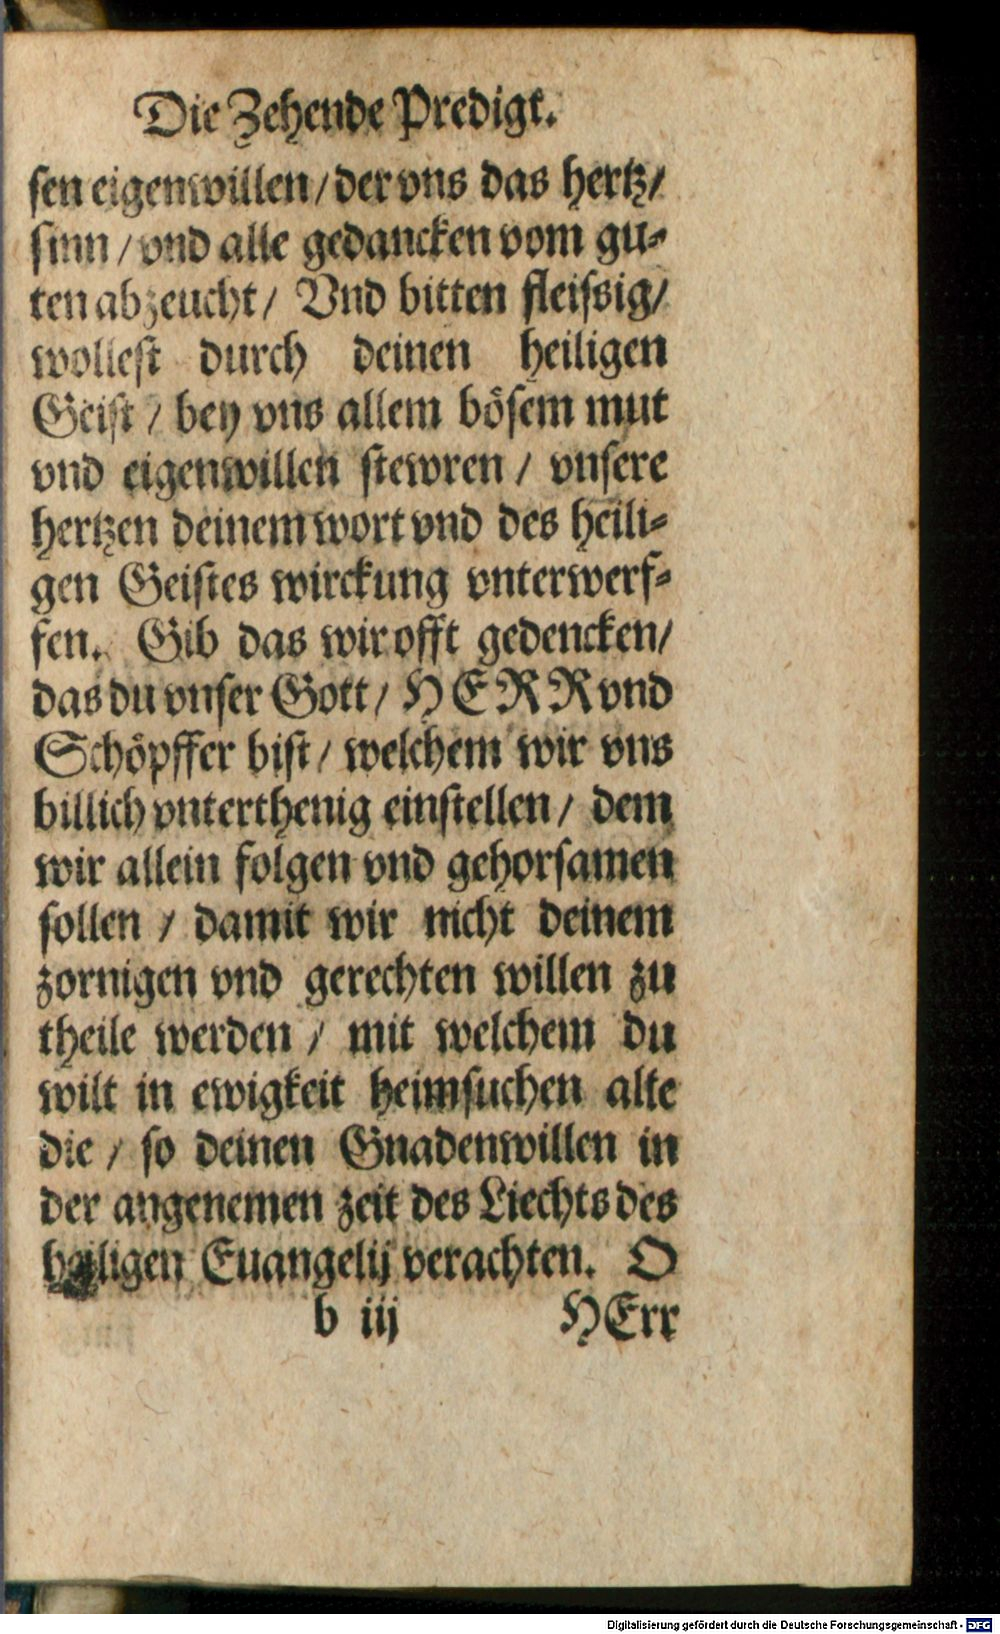 Die Zehende Predigt.
sen eigenwillen/ der vns das hertz/
sinn / vnd alle gedancken vom gu-
ten abzeucht/ Vnd bitten fleissig/
wollest durch deinen heiligen
Geist / bey vns allem bösem mut
vnd eigenwillen stewren / vnsere
hertzen deinem wort vnd des heili-
gen Geistes wirckung vnterwerf-
fen. Gib das wir offt gedencken/
das du vnser Gott/ HERR vnd
Schöpffer bist/ welchem wir vns
billich vnterthenig einstellen/ dem
wir allein folgen vnd gehorsamen
sollen / damit wir nicht deinem
zornigen vnd gerechten willen zu
theile werden / mit welchem du
wilt in ewigkeit heimsuchen alle
die / so deinen Gnadenwillen in
der angenemen zeit des Liechts des
heiligen Euangelij verachten. O
b iij HErr
Digitalisierung gefördert durch die Deutsche Forschungsgemeinschaft - DFG